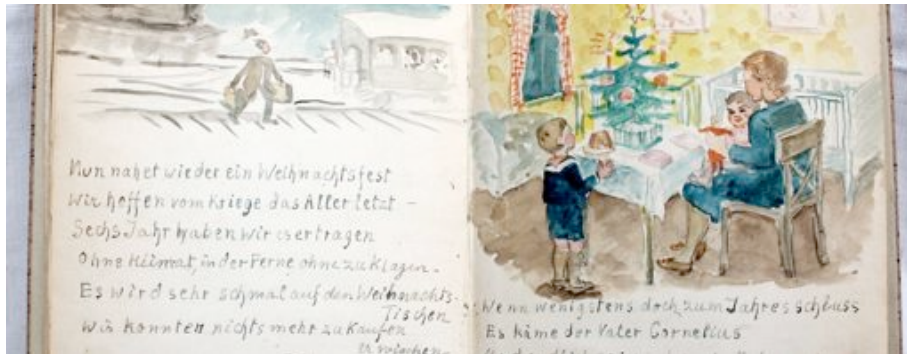 Nun nahet wieder ein Weihnachtsfest
Wir hoffen vom Kriege das Allerletzt –
Sechs Jahr haben wir es ertragen
Ohne Heimat, in der Ferne ohne zu klagen.
Es wird sehr schmal auf den Weihnachts-
Tischen
Wir konnten nichts mehr zu Kaufen
erwischen
Wenn wenigstens doch zum Jahresschluss
Es käme der Vater Cornelius